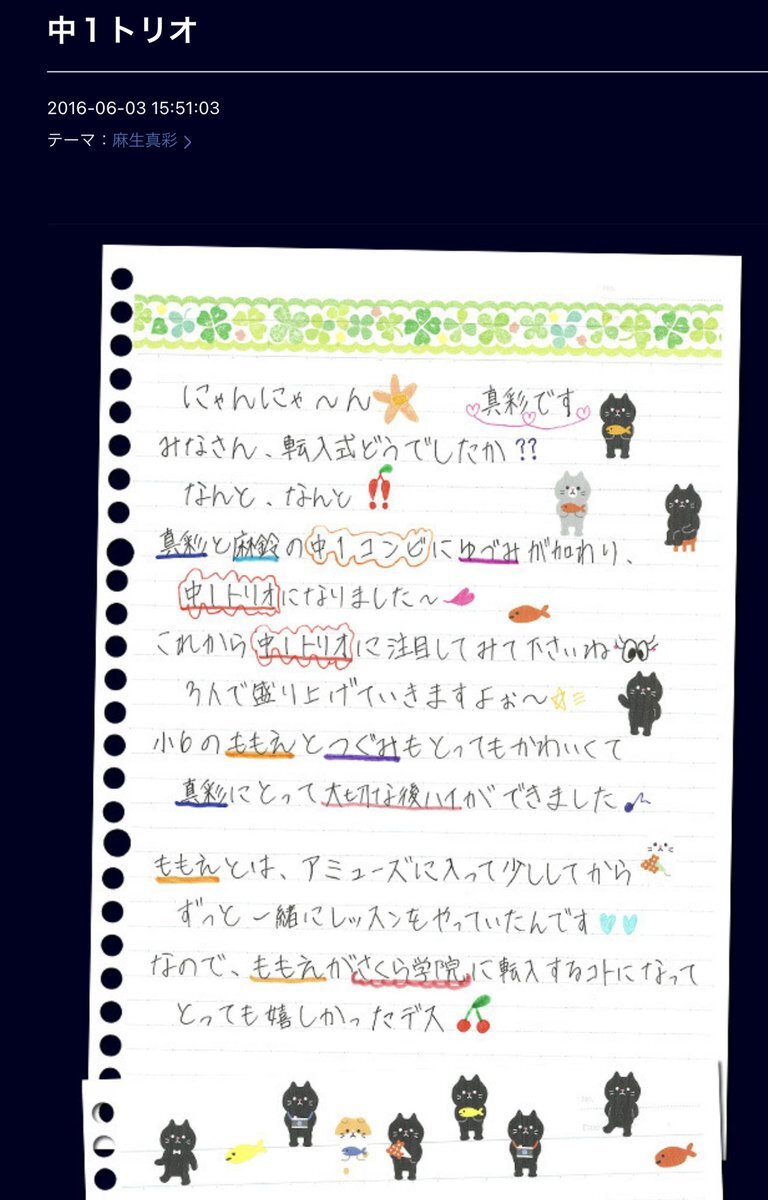 中1トリオ
2016-06-03 15:51:03
テーマ：麻生真彩 >
No.
にゃんにゃ〜ん 真彩です
みなさん、転入式どうでしたか??
なんと、なんと!!
真彩と麻鈴の中1コンビにゆづみが加わり、
中1トリオになりました〜
これから中1トリオに注目してみて下さいね
3人で盛り上げていきますよぉ〜
小6のももえとつぐみもとってもかわいくて
真彩にとって大切な後ハイができました♪
ももえとは、アミューズに入って少ししてから
ずっと一緒にレッスンをやっていたんです
なので、ももえがさくら学院に転入するコトになって
とっても嬉しかったデス
No.